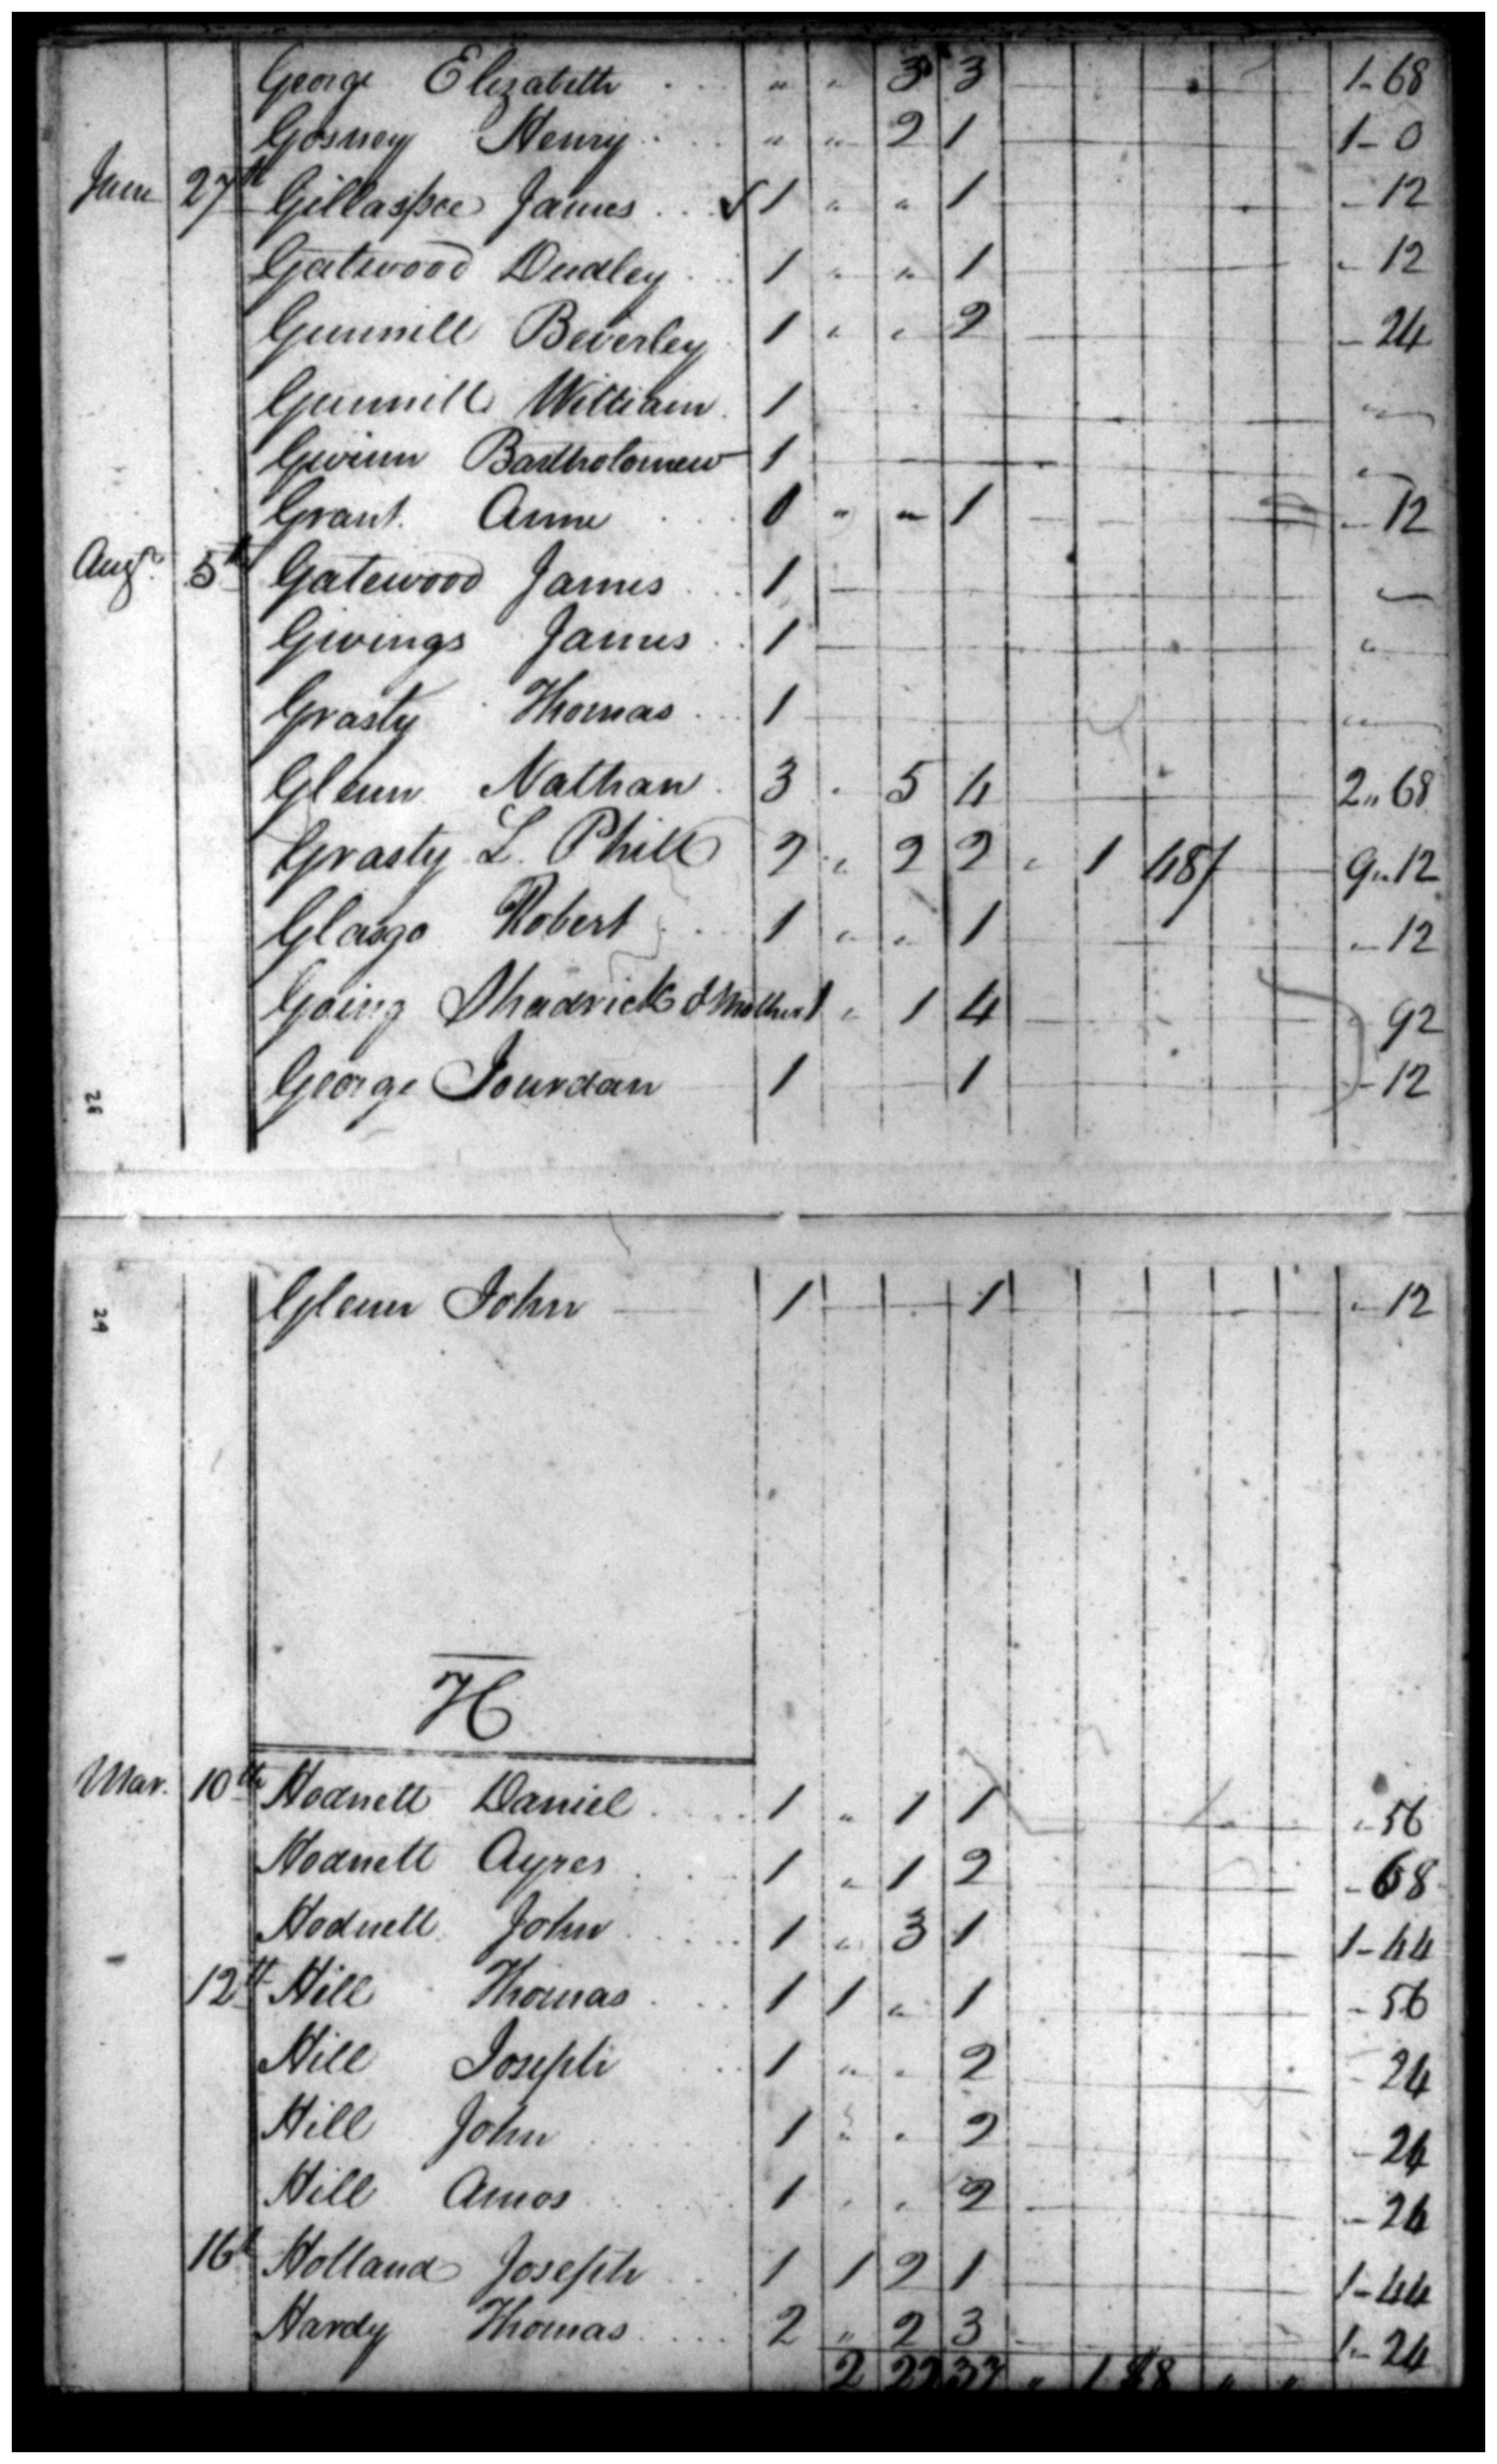 George Elizabeth . . " " 3 3 1-68
Gosney Henry . . " " 2 1 1-0
June 27th Gillaspee James . . ✓ 1 " " 1 -12
Gatewood Dudley . . 1 " " 1 -12
Gunnill Beverley 1 " " 2 -24
Gunnill William . 1 "
Bartholomew 1 "
Grant Anne . . 1 " " 1 -12
Augt. 5th Gatewood James . . 1
Givings James . . 1 "
Grasty Thomas . . 1 "
Glenn Nathan . 3 . 5 4 2" 68
Grasty L. Phill 2 " 2 2 " 1 48/ 9" 12
Robert . . 1 " " 1 "-12
Going Shadrick & Mother 1 " 1 4 92
George Jourdan 1 1 -12
28
29
Glenn John 1 1 "-12
H
Mar. 10th Hodnett Daniel . . 1 " 1 1 "-56
Hodnett Ayres . . 1 " 1 2 -68
Hodnett John . . 1 " 3 1 1-44
12th Hill Thomas . . 1 1 " 1 -56
Hill Joseph . . 1 " " 2 -24
Hill John . . 1 " " 2 -24
Hill Amos . . 1 " " 2 -24
16th Holland Joseph . . 1 1 2 1 1-44
Hardy Thomas . . 2 " 2 3 1-24
2 22 37 " 1 48 " "